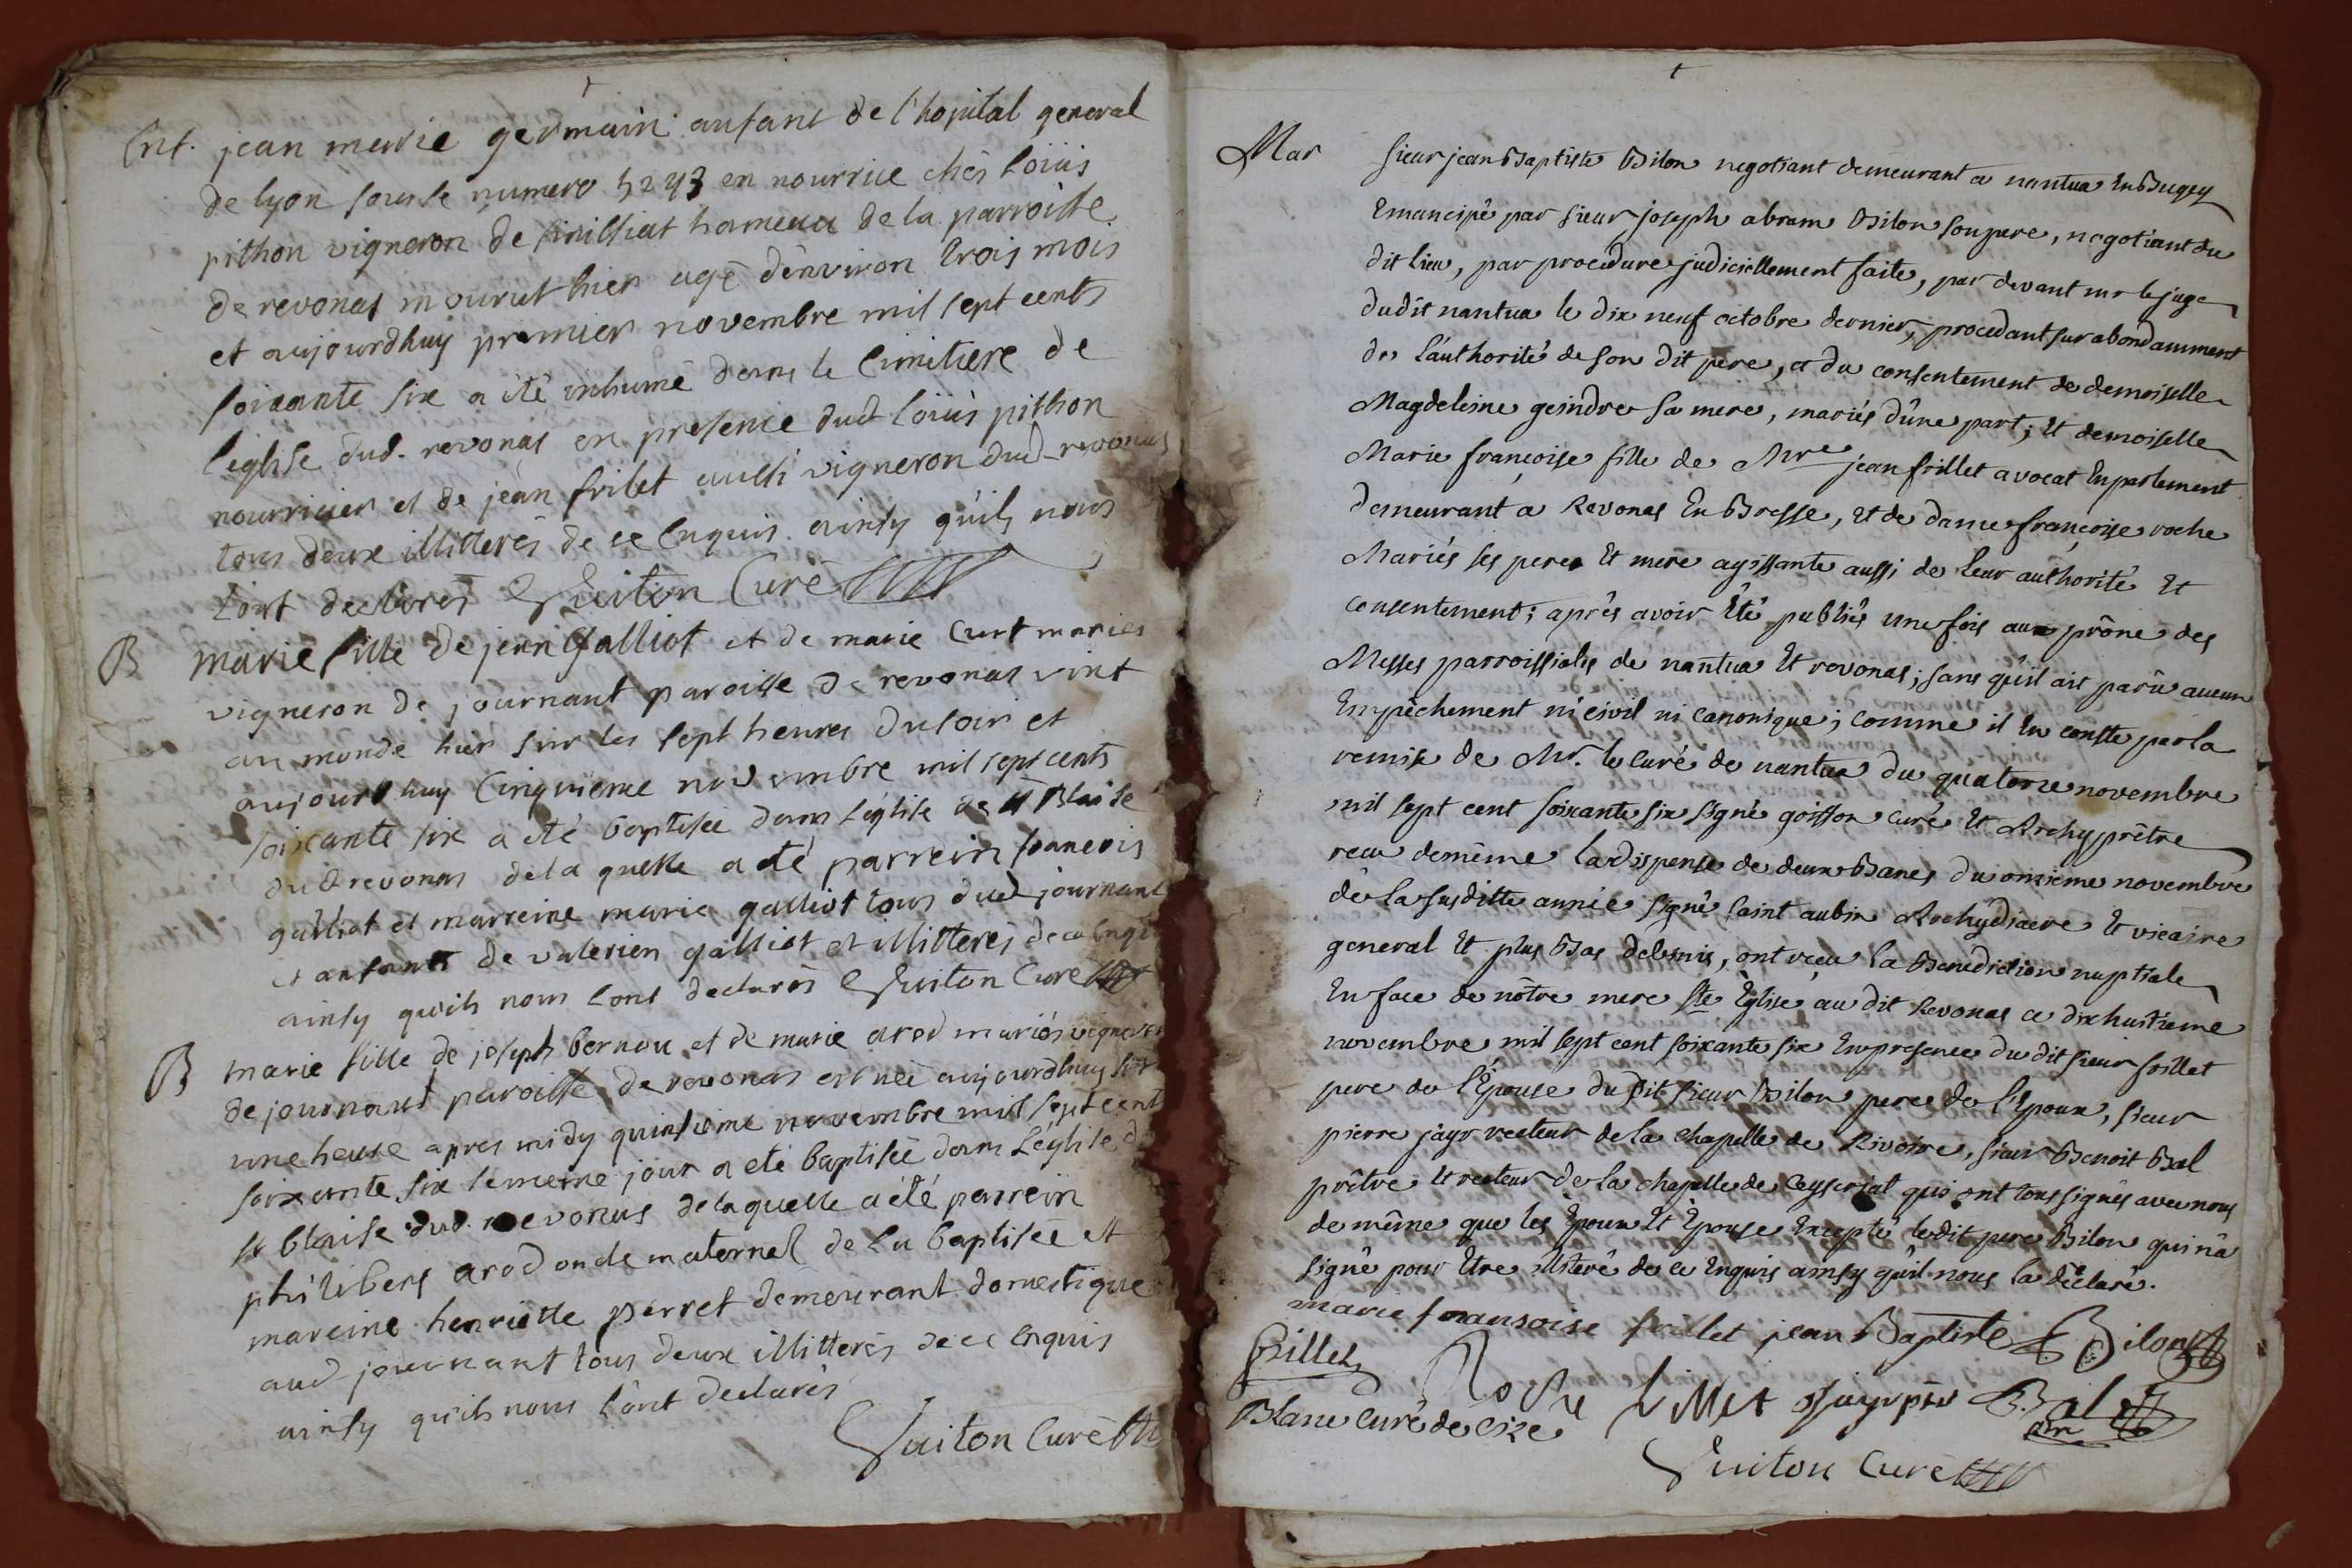 Ent. jean marie germain anfant de l'hopital general
de lyon sous le numero 5243 en nourrice chés loüis
pithon vigneron de hameau de la parroisse
de revonas mourut hier agé d'environ trois mois
et aujourdhuy premier novembre mil sept cents
soixante six a été inhumé dans le cimitiere de
l'eglise dud. revonas en presence dud loüis pithon
nourricier et de jean frilet aussi vigneron dud revonas
tous deux illitterés de ce enquis ainsy qu'ils nous
l'ont declarés Guiton Curé
B marie fille de jean Galliot et de marie Curt mariés
vigneron de journant paroisse de revonas vint
au monde hier sur les sept heures du soir et
aujourdhuy Cinquieme novembre mil sept cents
soixante six a été baptisée dans l'eglise de st Blaise
dud revonas de la quelle a été parrein francois
galliot et marreine marie galliot tous dud journant
et anfants de valerien galliot et illitterés de ce enquis
ainsy qu'ils nous l'ont declarés Guiton Curé
B marie fille de joseph bernou et de marie arod mariés vigneron
de journant paroisse de revonas est née aujourdhuy sur
une heure apres midy quinsieme novembre mil sept cent
soixante six le meme jour a eté baptisée dans l'eglise de
st blaise dud. revonas de laquelle a été parrein
philibert arod oncle maternel de la baptisée et
mareine henriette perret demeurant domestique
aud journant tous deux illitterés de ce enquis
ainsy qu'ils nous l'ont declarés
Guiton Curé
Mar sieur jean Baptiste Bilon negotiant demeurant a nantua En Bugey
Emancipé par sieur joseph abram Bilon son pere, negotiant du
dit lieu, par procedure judiciellement faite, par devant mr le juge
dudit nantua le dix neuf octobre dernier, procedant surabondamment
de l'authorité de son dit pere, et du consentement de demoiselle
Magdeleine geindre sa mere, mariés d'une part; Et demoiselle
Marie francoise fille de Mre jean frillet avocat En parlement
demeurant a Revonas En Bresse, et de dame francoise roche
Mariés ses pere Et mere agissante aussi de leur authorité Et
consentement; aprés avoir Eté publiés une fois aux prône des
Messes parroissiales de nantua Et revonas; sans qu'il ait parû aucun
Empêchement ni civil ni canonique; comme il En conste par la
remise de Mr. le Curé de nantua du quatorze novembre
mil sept cent soixante six signé goiffon curé Et Archyprêtre
reçu demême la dispense de deux Bancs du onzieme novembre
de la susditte année signé saint aubin Archydiacre Et vicaire
general Et plus Bas delesmis, ont reçu la Benediction nuptiale
En face de nôtre mere ste Eglise au dit Revonas ce dixhuitieme
novembre mil sept cent soixante six En presence du dit sieur frillet
pere de l'Epouse du dit sieur Bilon pere de l'Epoux, sieur
pierre jayr recteur de la chapelle de Rivoire, sieur Benoit Bal
prêtre Et recteur de la chapelle de Ceyseriat qui ont tous signés avec nous
de même que les Epoux Et Epouse Excepté le dit pere Bilon qui n'a
signé pour Etre illiteré de ce Enquis ainsy qu'il nous la déclaré.
marie fransoise frillet jean Baptiste Bilon
Roche frillet jayr ptre B. Bal
Blanc Curé de Cize
Guiton Curé